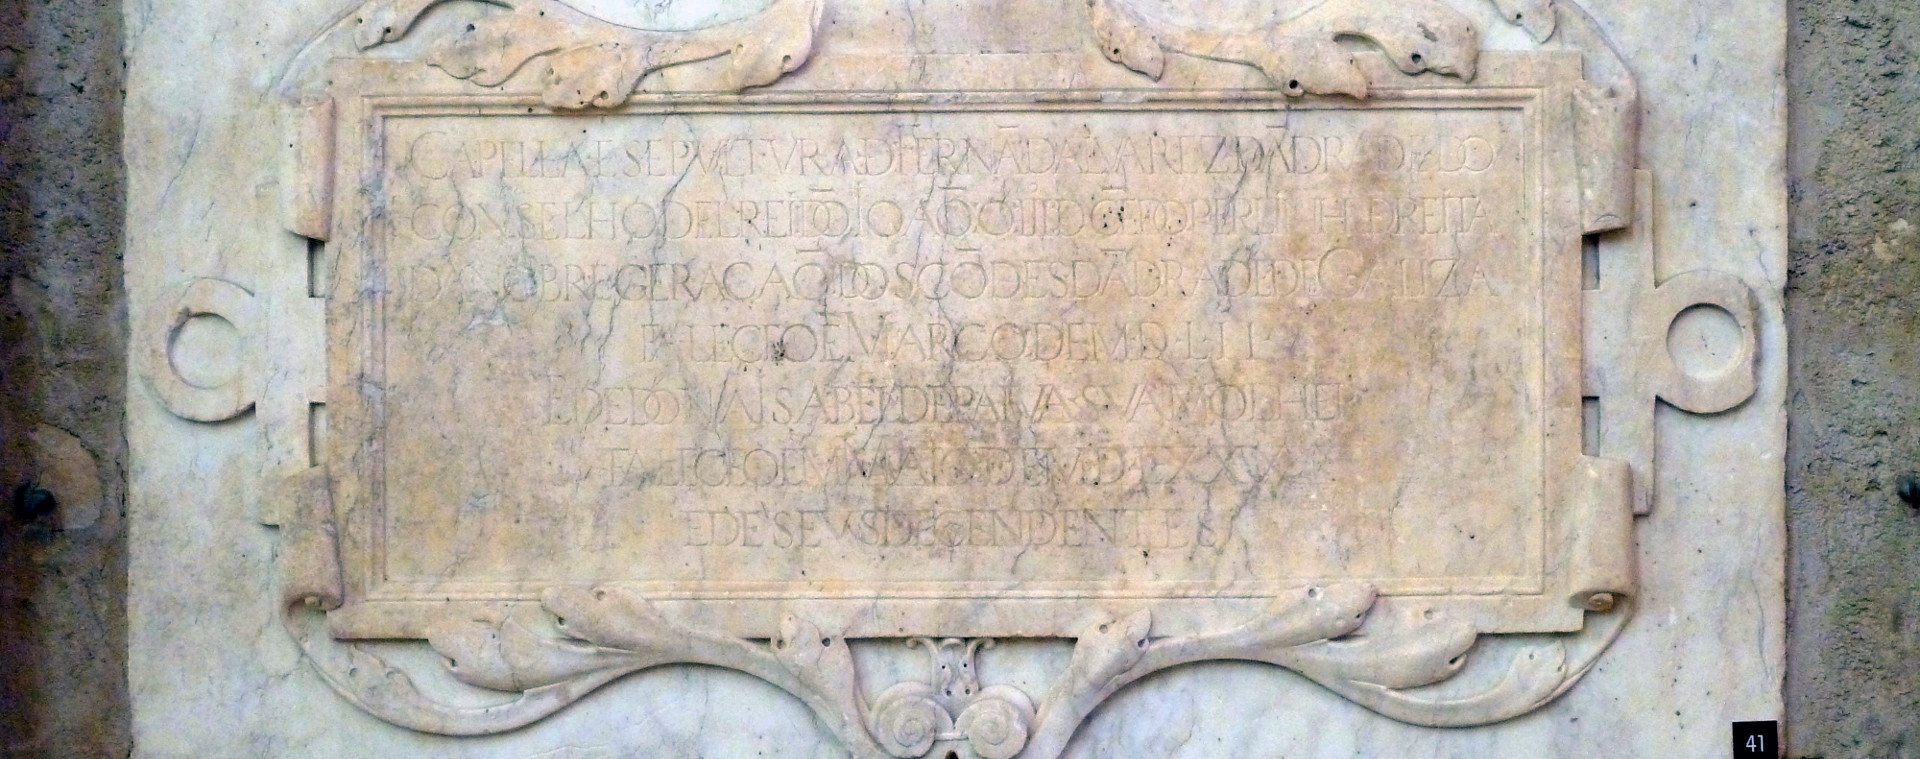 CAPELLA E SEPVLTVRA D FERNÃD ALVAREZ DÃDRADE DO
CONSELHO DEL REI DÕ IOAÕ O III DECEO PER LINHA DREITA
DA NOBRE GERAÇAÕ DOS CÕDES DÃDRADE DE GALIZA
FALECEO E MARÇO DE M.D.L.II.
E DE DONA ISABEL DE PAIVA SVA MOLHER
FALECEO EM MAIO DE M.D.LXXX
E DE SEVS DECENDENTES
41